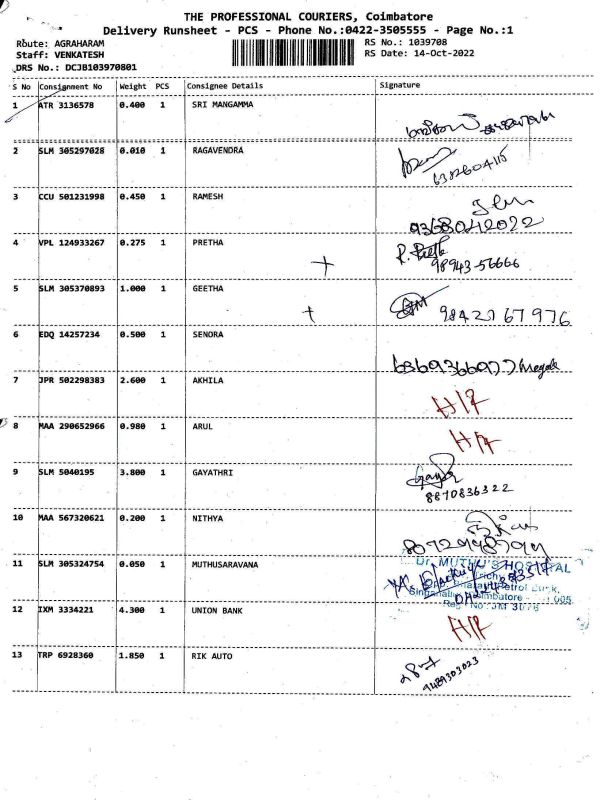 THE PROFESSIONAL COURIERS, Coimbatore
Delivery Runsheet - PCS - Phone No.:0422-3505555 - Page No.:1
Route: AGRAHARAM RS No.: 1039708
Staff: VENKATESH RS Date: 14-Oct-2022
DRS No.: DCJB103970801
S No Consignment No Weight PCS Consignee Details Signature
1 ATR 3136578 0.400 1 SRI MANGAMMA
2 SLM 305297028 0.010 1 RAGAVENDRA
3 CCU 501231998 0.450 1 RAMESH
9368042022
4 VPL 124933267 0.275 1 PRETHA
98943-56666
5 SLM 305370893 1.000 1 GEETHA
9842767976
6 EDQ 14257234 0.500 1 SENORA
7 JPR 502298383 2.600 1 AKHILA
8 MAA 290652966 0.980 1 ARUL
9 SLM 5040195 3.800 1 GAYATHRI
8870836322
10 MAA 567320621 0.200 1 NITHYA
11 SLM 305324754 0.050 1 MUTHUSARAVANA
Dr. MUTHU'S HOSPITAL
12 IXM 3334221 4.300 1 UNION BANK
13 TRP 6928360 1.850 1 RIK AUTO
9489303023